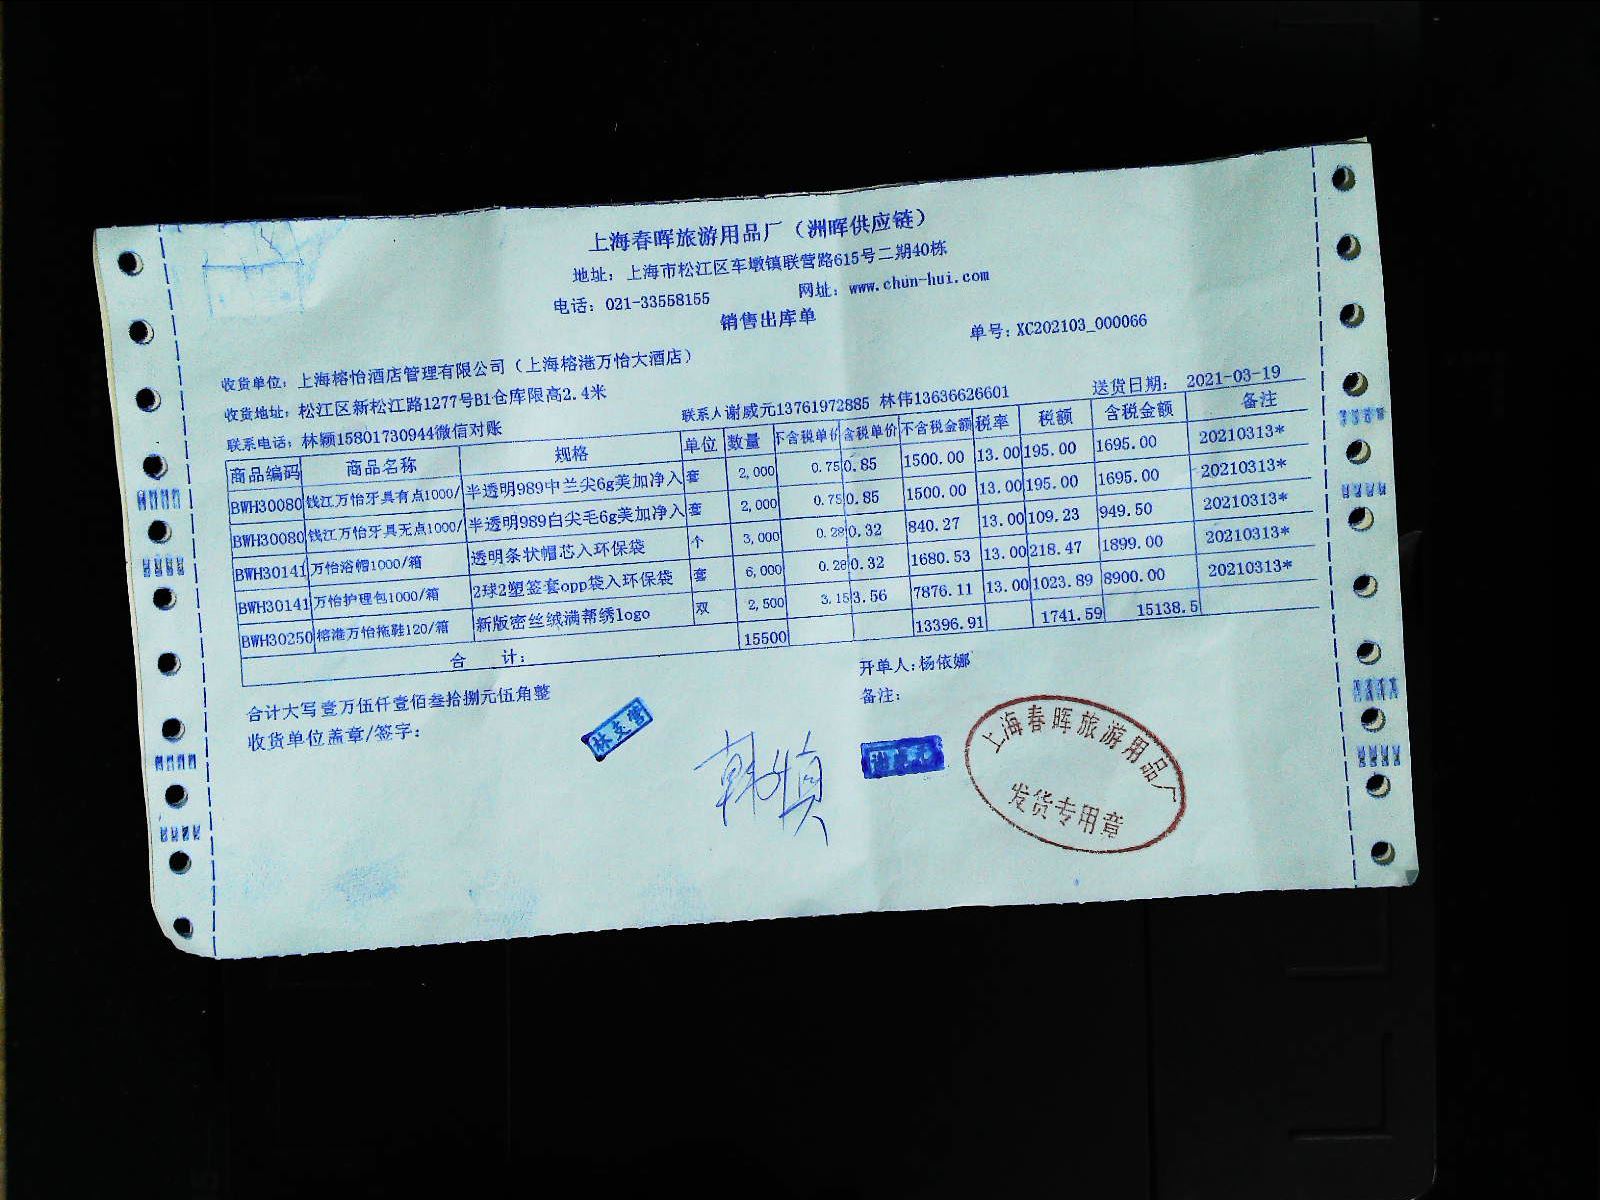 上海春晖旅游用品厂（洲晖供应链）
地址：上海市松江区车墩镇联营路615号二期40栋
电话：021-33558155 网址：www.chun-hui.com
销售出库单
单号：XC202103_000066
收货单位：上海榕怡酒店管理有限公司（上海榕港万怡大酒店）
收货地址：松江区新松江路1277号B1仓库限高2.4米
联系人谢威元13761972885 林伟13636626601 送货日期： 2021-03-19
联系电话：林颖15801730944微信对账
商品编码 商品名称 规格 单位 数量 不含税单价 含税单价 不含税金额 税率 税额 含税金额 备注
BWH30080 钱江万怡牙具有点1000/ 半透明989中兰尖6g美加净入 套 2,000 0.75 0.85 1500.00 13.00 195.00 1695.00 20210313*
BWH30080 钱江万怡牙具无点1000/ 半透明989白尖毛6g美加净入 套 2,000 0.75 0.85 1500.00 13.00 195.00 1695.00 20210313*
BWH30141 万怡浴帽1000/箱 透明条状帽芯入环保袋 个 3,000 0.28 0.32 840.27 13.00 109.23 949.50 20210313*
BWH30141 万怡护理包1000/箱 2球2塑签套opp袋入环保袋 套 6,000 0.28 0.32 1680.53 13.00 218.47 1899.00 20210313*
BWH30250 榕港万怡拖鞋120/箱 新版密丝绒满帮绣logo 双 2,500 3.15 3.56 7876.11 13.00 1023.89 8900.00 20210313*
合 计： 15500 13396.91 1741.59 15138.5
合计大写壹万伍仟壹佰叁拾捌元伍角整
开单人：杨依娜
收货单位盖章/签字：
备注：
上海春晖旅游用品厂
发货专用章